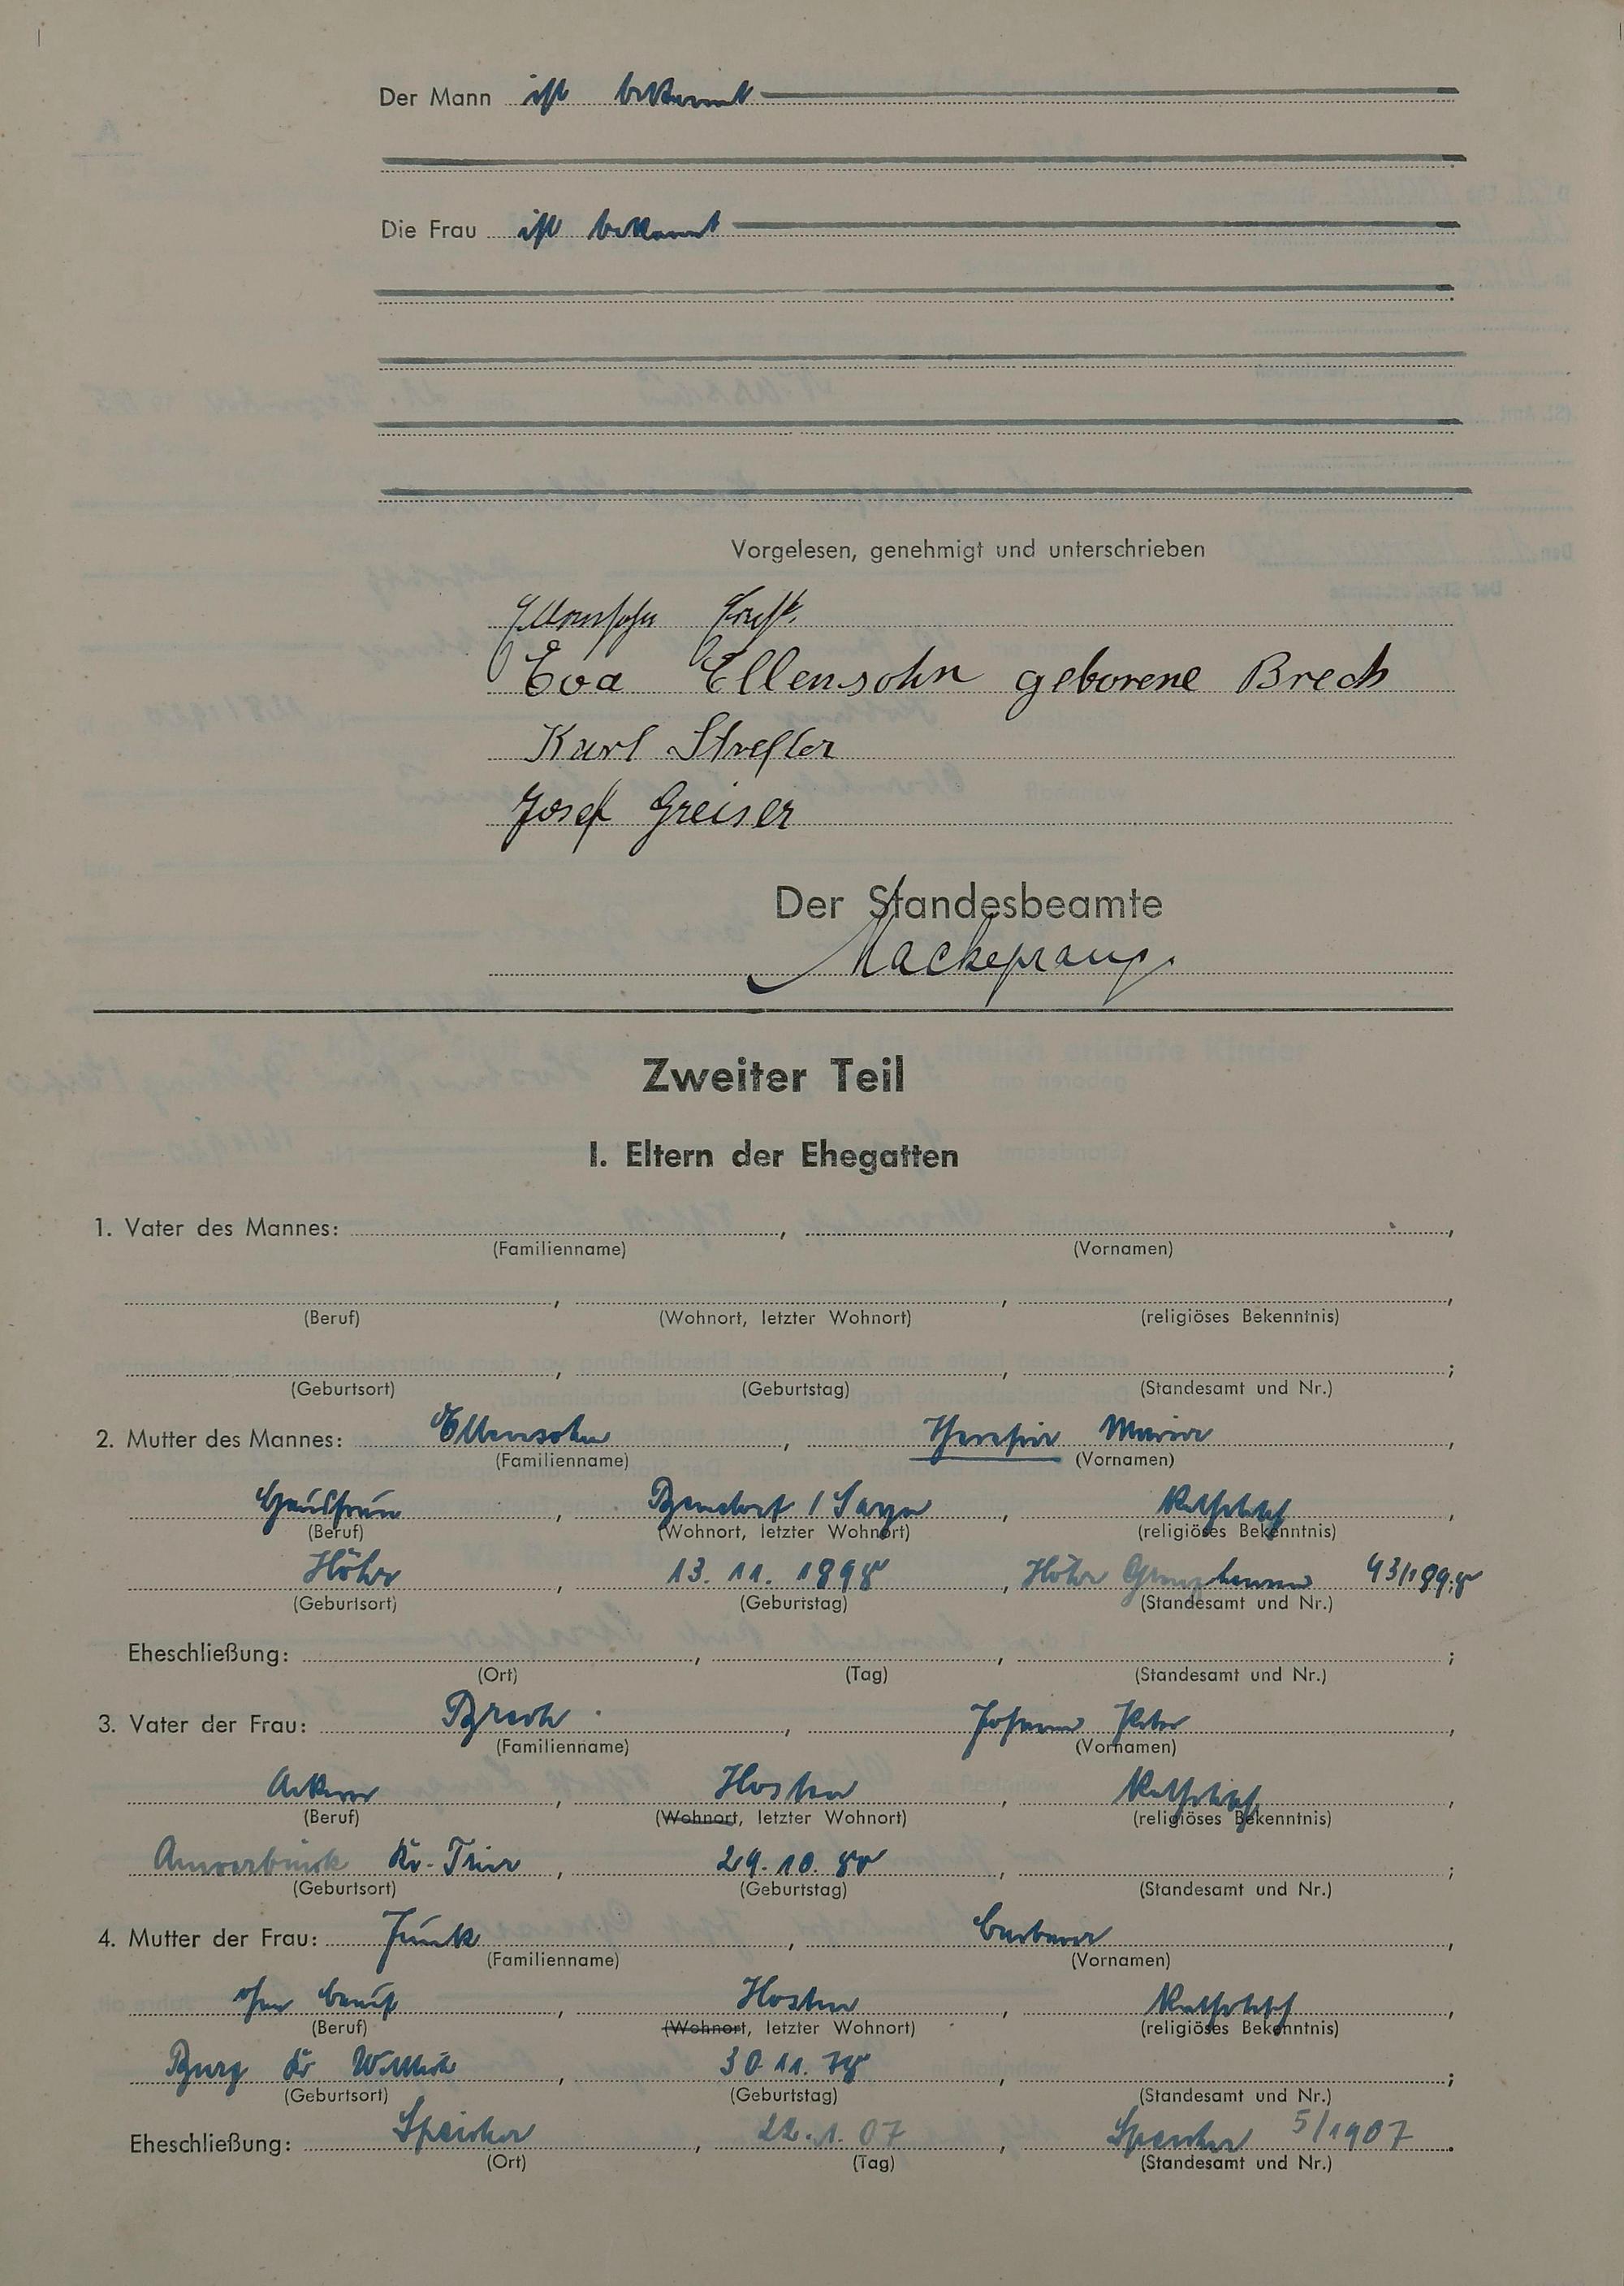 Der Mann ist bekannt
Die Frau ist bekannt
Vorgelesen, genehmigt und unterschrieben
Ellensohn Ernst.
Eva Ellensohn geborene Brech
Karl
Josef Greiser
Der Standesbeamte
Mackeprang.
Zweiter Teil
I. Eltern der Ehegatten
1. Vater des Mannes: , ,
(Familienname) (Vornamen)
, , ,
(Beruf) (Wohnort, letzter Wohnort) (religiöses Bekenntnis)
, , ;
(Geburtsort) (Geburtstag) (Standesamt und Nr.)
2. Mutter des Mannes: Ellensohn , Theresia Maria ,
(Familienname) (Vornamen)
Hausfrau , Bendorf / Sayn , katholisch ,
(Beruf) (Wohnort, letzter Wohnort) (religiöses Bekenntnis)
Höhr , 13. 11. 1898 , Höhr Grenzhausen 93/1898
(Geburtsort) (Geburtstag) (Standesamt und Nr.)
Eheschließung: , , ;
(Ort) (Tag) (Standesamt und Nr.)
3. Vater der Frau: Brech , Johann Peter ,
(Familienname) (Vornamen)
Ackerer , Hosten , katholisch ,
(Beruf) (Wohnort, letzter Wohnort) (religiöses Bekenntnis)
Kr. Trier , 29. 10. 80 , ;
(Geburtsort) (Geburtstag) (Standesamt und Nr.)
4. Mutter der Frau: Junk , Barbara ,
(Familienname) (Vornamen)
ohne Beruf , Hosten , katholisch ,
(Beruf) (Wohnort, letzter Wohnort) (religiöses Bekenntnis)
Burg Kr Wittlich , 30. 11. 78 , ;
(Geburtsort) (Geburtstag) (Standesamt und Nr.)
Eheschließung: Speicher , 22. 1. 07 , Speicher 5/1907 .
(Ort) (Tag) (Standesamt und Nr.)